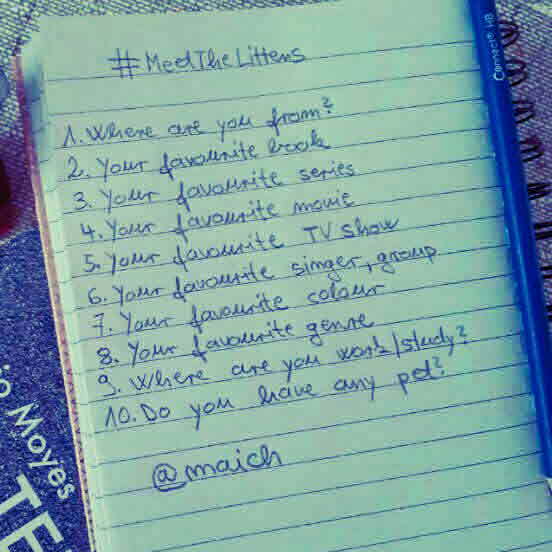 #MeetTheLittens
1. Where are you from?
2. Your favourite book
3. Your favourite series
4. Your favourite movie
5. Your favourite TV show
6. Your favourite singer, group
7. Your favourite colour
8. Your favourite genre
9. Where are you work/study?
10. Do you have any pet?
@maich
Connect HB
o Moyes
TE